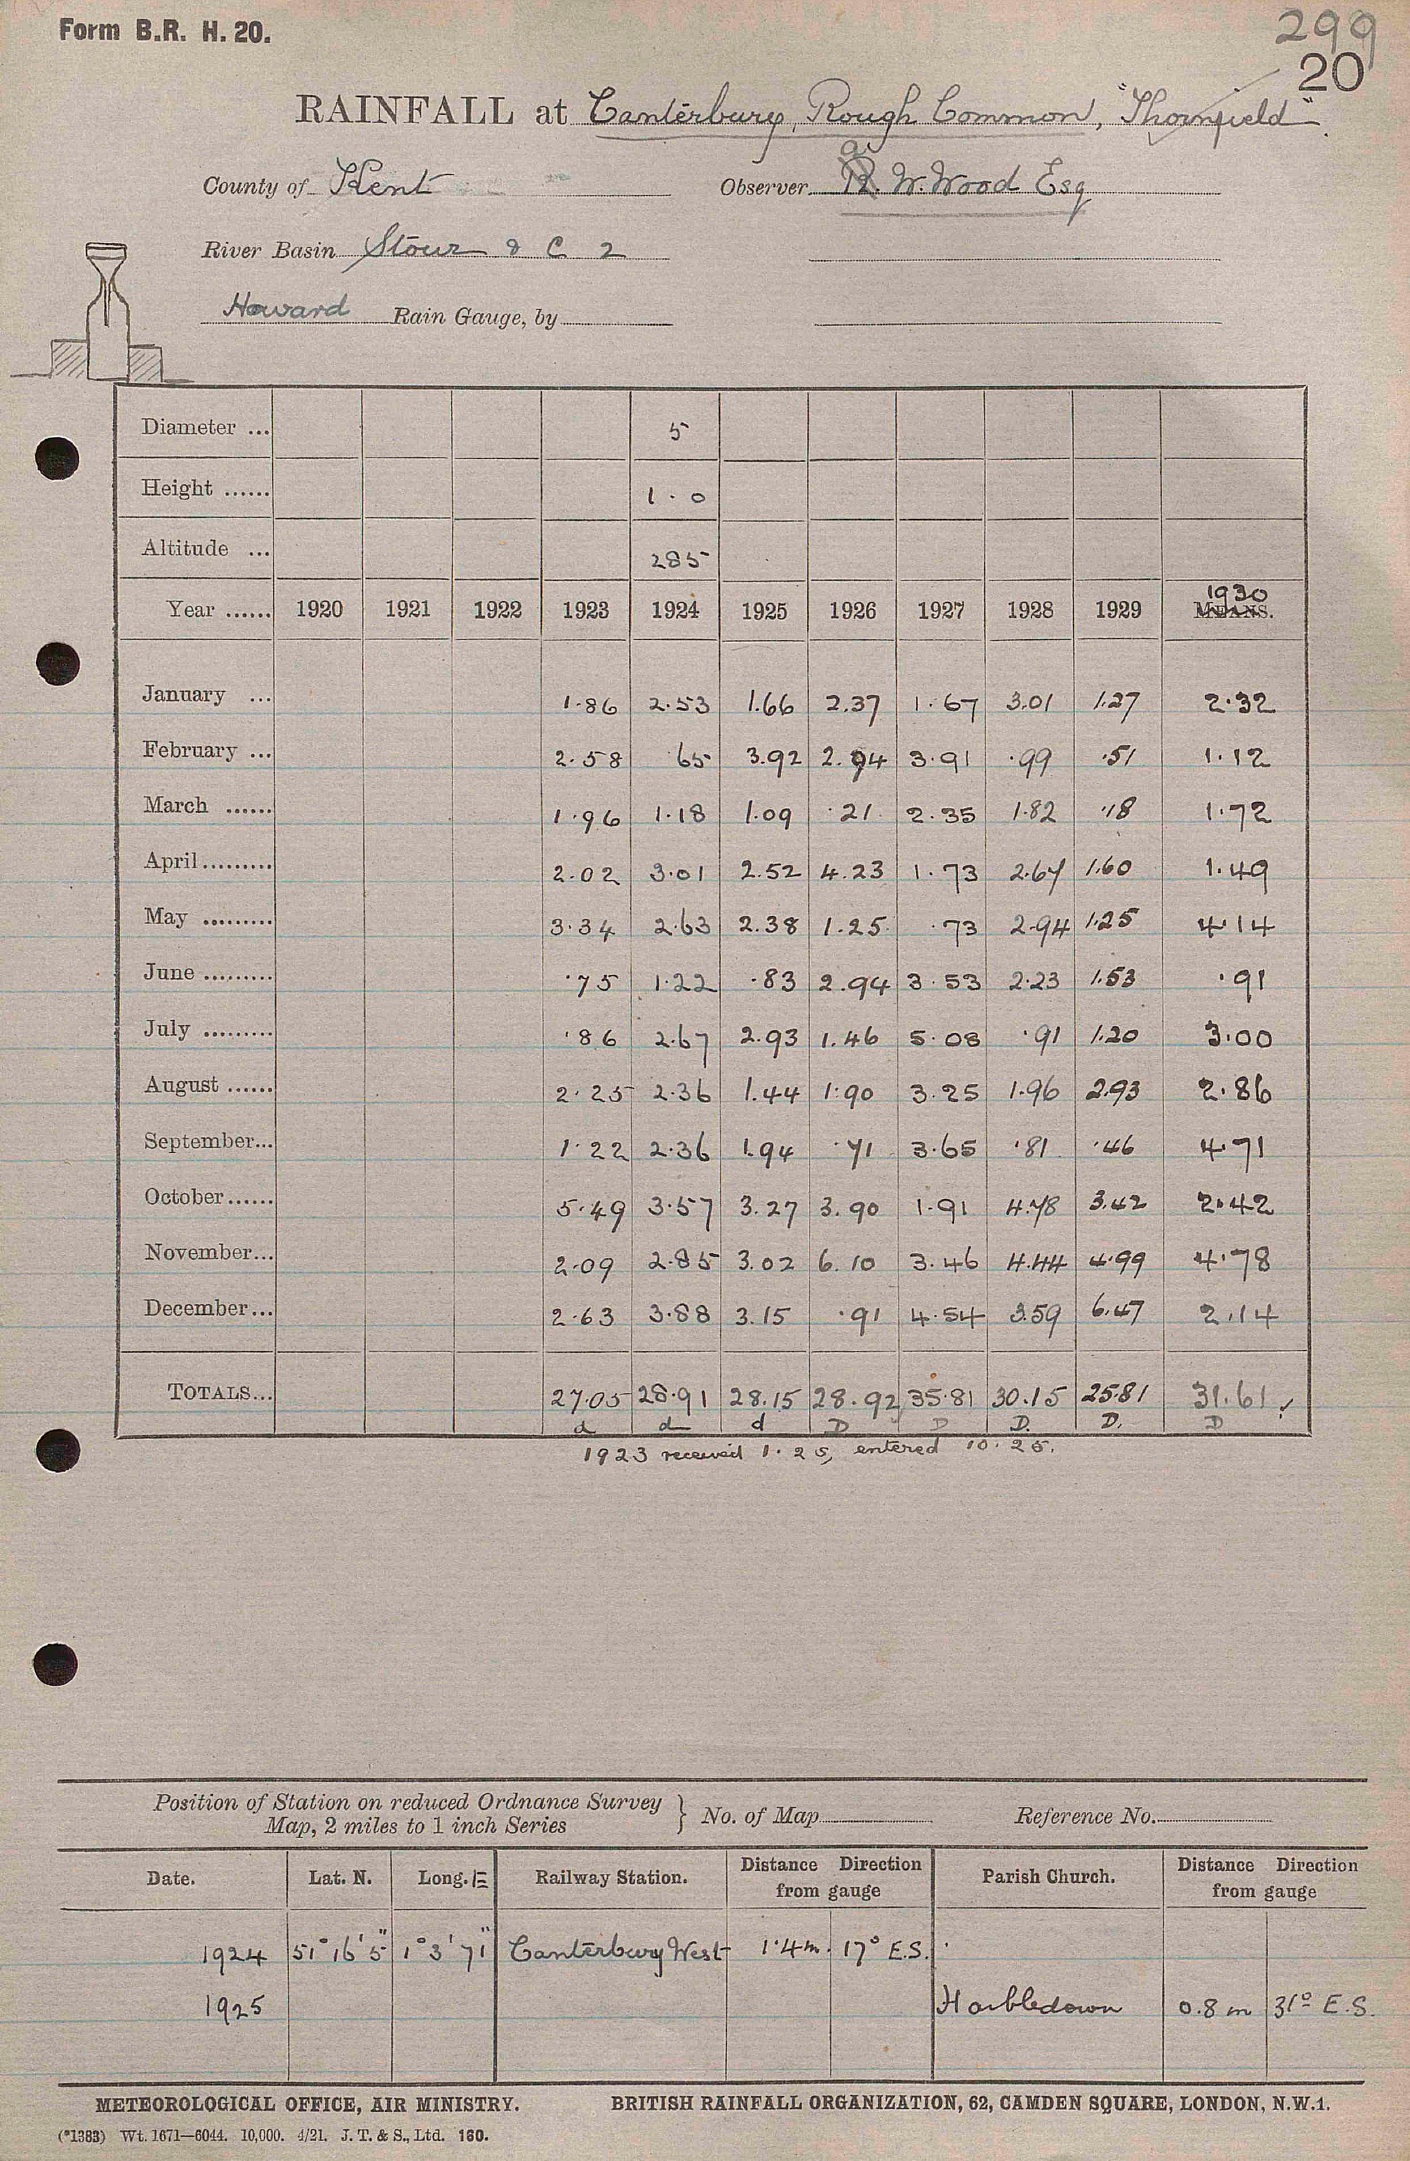 Form B.R. H. 20.
299
20
RAINFALL at Canterbury, Rough Common, "Thornfield".
County of Kent
Observer R. W. Wood Esq
River Basin Stour & C 2
Howard Rain Gauge, by
Diameter ... 5
Height ...... 1.0
Altitude ... 285
Year ...... 1920 1921 1922 1923 1924 1925 1926 1927 1928 1929 MEANS. 1930
January ... 1.86 2.53 1.66 2.37 1.67 3.01 1.27 2.32
February ... 2.58 .65 3.92 2.94 3.91 .99 .51 1.12
March ...... 1.96 1.18 1.09 .21 2.35 1.82 .18 1.72
April ......... 2.02 3.01 2.52 4.23 1.73 2.67 1.60 1.49
May ......... 3.34 2.63 2.38 1.25 .73 2.94 1.25 4.14
June ......... .75 1.22 .83 2.94 3.53 2.23 1.53 .91
July ......... .86 2.67 2.93 1.46 5.08 .91 1.20 3.00
August ...... 2.25 2.36 1.44 1.90 3.25 1.96 2.93 2.86
September... 1.22 2.36 1.94 .71 3.65 .81 .46 4.71
October ...... 5.49 3.57 3.27 3.90 1.91 4.78 3.42 2.42
November... 2.09 2.85 3.02 6.10 3.46 4.44 4.99 4.78
December... 2.63 3.88 3.15 .91 4.54 3.59 6.47 2.14
TOTALS... 27.05 28.91 28.15 28.92 35.81 30.15 25.81 31.61 ✓
d d d D D D. D. D
1923 received 1.25, entered 10.25.
Position of Station on reduced Ordnance Survey
Map, 2 miles to 1 inch Series } No. of Map Reference No.
Date. Lat. N. Long. E Railway Station. Distance Direction from gauge Parish Church. Distance Direction from gauge
1924 51° 16' 5" 1° 3' 71" Canterbury West 1.4 m. 17° E.S.
1925 Harbledown 0.8 m 31° E.S.
METEOROLOGICAL OFFICE, AIR MINISTRY. BRITISH RAINFALL ORGANIZATION, 62, CAMDEN SQUARE, LONDON, N.W.1.
(*1383) Wt. 1671—6044. 10,000. 4/21. J. T. & S., Ltd. 160.